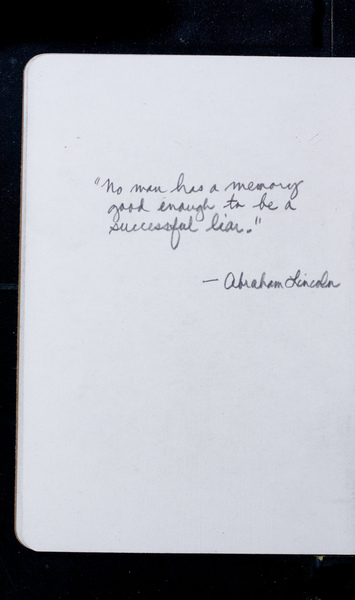 "No man has a memory
good enough to be a
successful liar."
— Abraham Lincoln